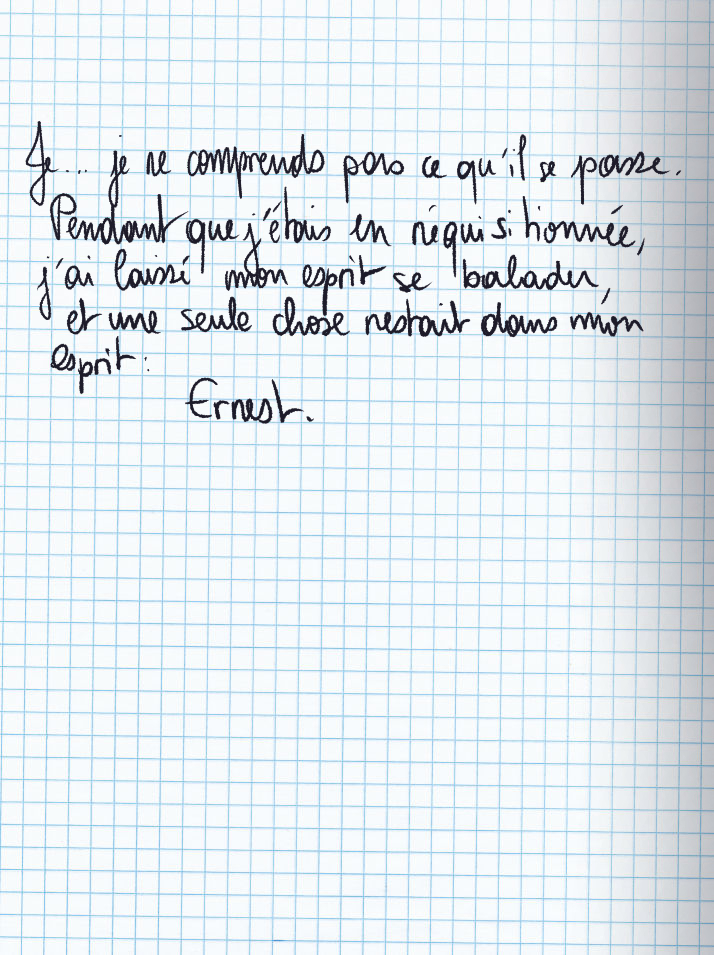 Je... je ne comprends pas ce qu'il se passe.
Pendant que j'étais en réquisitionnée,
j'ai laissé mon esprit se balader,
et une seule chose restait dans mon
esprit:
Ernest.